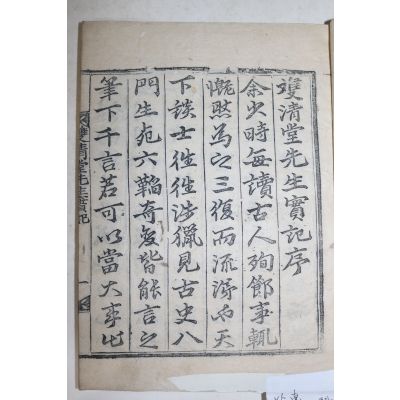 雙清堂先生實記序
余少時每讀古人殉節事輒
慨然爲之三復而流涕也天
下談士徃徃涉獵見古史八
門生死六韜奇&#27491;皆能言之
筆下千言若可以當大事此
雙清堂先生實記